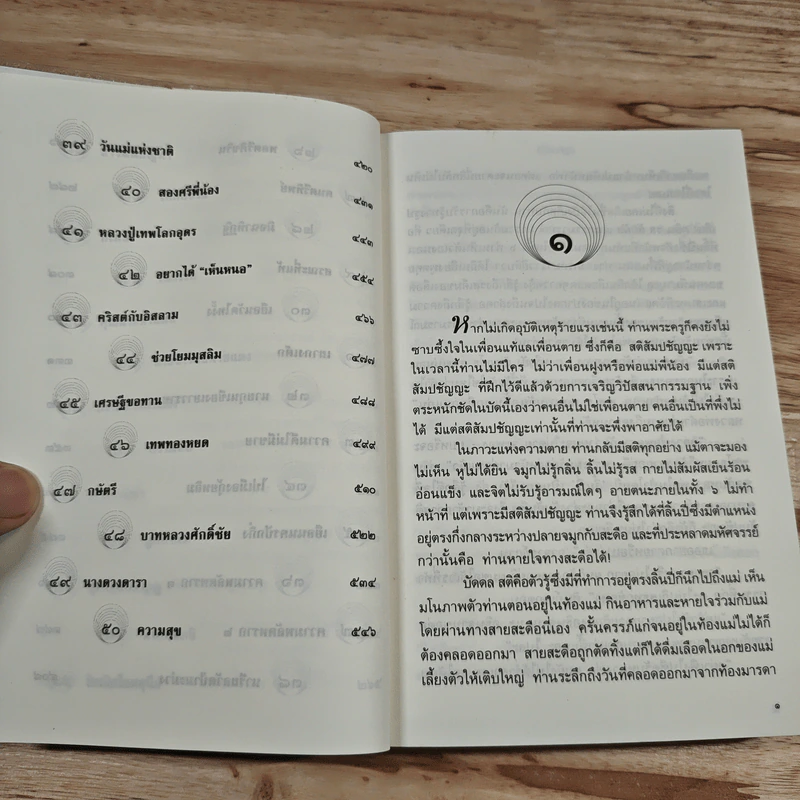 ๓๙ วันแม่แห่งชาติ ๔๒๐
๔๐ สองศรีพี่น้อง ๔๓๑
๔๑ หลวงปู่เทพโลกอุดร ๔๔๓
๔๒ อยากได้ “เห็นหนอ” ๔๕๔
๔๓ คริสต์กับอิสลาม ๔๖๖
๔๔ ช่วยโยมมุสลิม ๔๗๗
๔๕ เศรษฐีขอทาน ๔๘๘
๔๖ เทพทองหยด ๔๙๙
๔๗ กษัตรี ๕๑๐
๔๘ บาทหลวงศักดิ์ชัย ๕๒๒
๔๙ นางดวงดารา ๕๓๔
๕๐ ความสุข ๕๔๖
๑
หากไม่เกิดอุบัติเหตุร้ายแรงเช่นนี้ ท่านพระครูก็คงยังไม่
ซาบซึ้งใจในเพื่อนแท้แลเพื่อนตาย ซึ่งก็คือ สติสัมปชัญญะ เพราะ
ในเวลานี้ท่านไม่มีใคร ไม่ว่าเพื่อนฝูงหรือพ่อแม่พี่น้อง มีแต่สติ
สัมปชัญญะ ที่ฝึกไว้ดีแล้วด้วยการเจริญวิปัสสนากรรมฐาน เพิ่ง
ตระหนักชัดในบัดนี้เองว่าคนอื่นไม่ใช่เพื่อนตาย คนอื่นเป็นที่พึ่งไม่
ได้ มีแต่สติสัมปชัญญะเท่านั้นที่ท่านจะพึ่งพาอาศัยได้
ในภาวะแห่งความตาย ท่านกลับมีสติทุกอย่าง แม้ตาจะมอง
ไม่เห็น หูไม่ได้ยิน จมูกไม่รู้กลิ่น ลิ้นไม่รู้รส กายไม่สัมผัสเย็นร้อน
อ่อนแข็ง และจิตไม่รับรู้อารมณ์ใดๆ อายตนะภายในทั้ง ๖ ไม่ทำ
หน้าที่ แต่เพราะมีสติสัมปชัญญะ ท่านจึงรู้สึกได้ที่ลิ้นปี่ซึ่งมีตำแหน่ง
อยู่ตรงกึ่งกลางระหว่างปลายจมูกกับสะดือ และที่ประหลาดมหัศจรรย์
กว่านั้นคือ ท่านหายใจทางสะดือได้!
บัดดล สติคือตัวรู้ซึ่งมีที่ทำการอยู่ตรงลิ้นปี่ก็นึกไปถึงแม่ เห็น
มโนภาพตัวท่านตอนอยู่ในท้องแม่ กินอาหารและหายใจร่วมกับแม่
โดยผ่านทางสายสะดือนี่เอง ครั้นครรภ์แก่จนอยู่ในท้องแม่ไม่ได้ก็
ต้องคลอดออกมา สายสะดือถูกตัดทิ้งแต่ก็ได้ดื่มเลือดในอกของแม่
เลี้ยงตัวให้เติบใหญ่ ท่านระลึกถึงวันที่คลอดออกมาจากท้องมารดา
๑